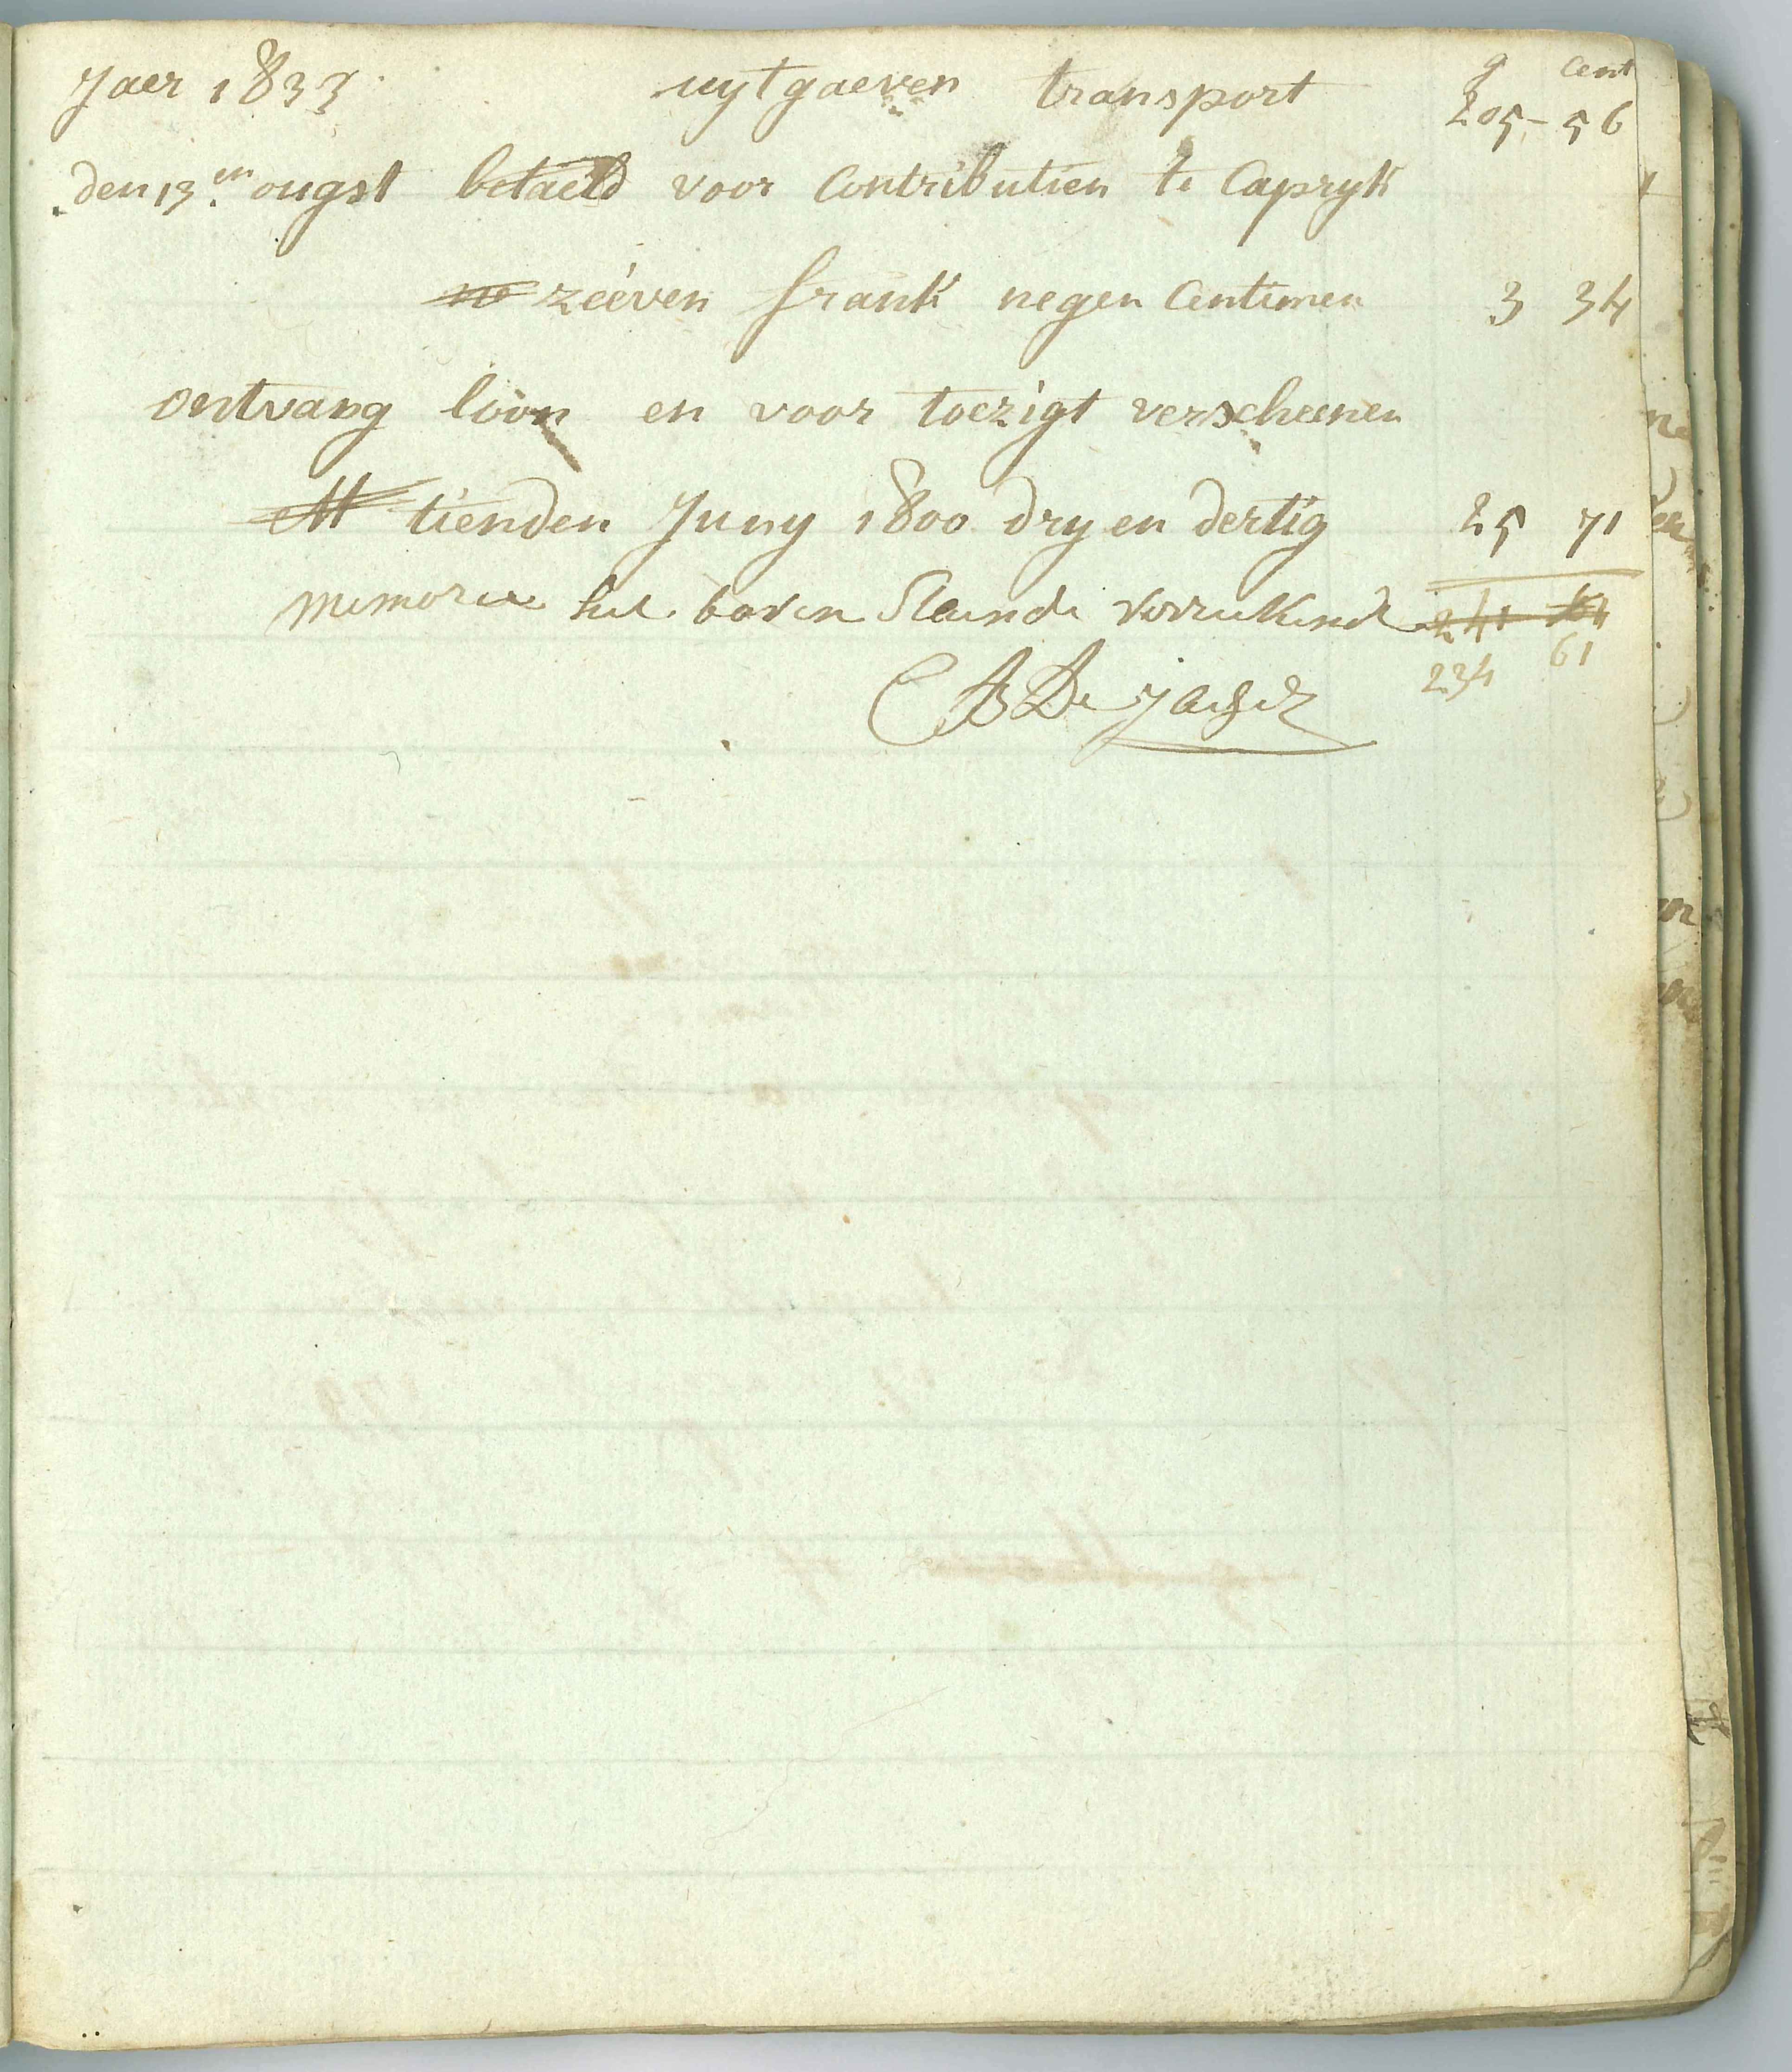 Jaer 1833. uytgaeven transport g cent
205-56
den 13en ougst betaeld voor Contributien te Capryk
zeeven frank negen Centimen 3 34
ontvang loon en voor toezigt verscheenen
tienden Juny 1800 dry en dertig 25 71
memorie het boven staende 241 64
234 61
De Jaeger